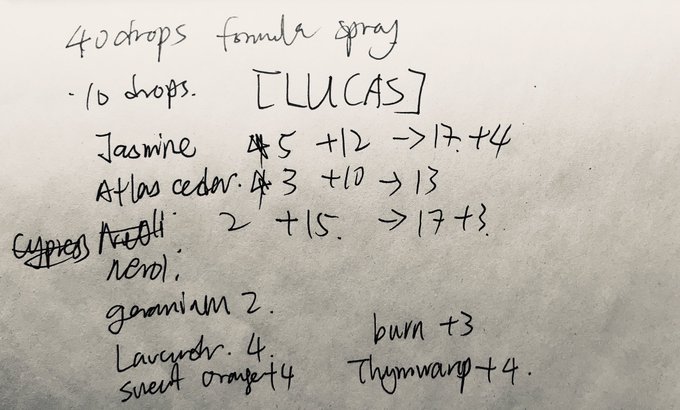 40 drops formula spray
· 10 drops. [LUCAS]
Jasmine 5 +12 → 17. +4
Atlas cedar. 3 +10 → 13
2 +15. → 17 +3.
nerol.
geranium 2.
burn +3
4.
sweet orange +4 +4.